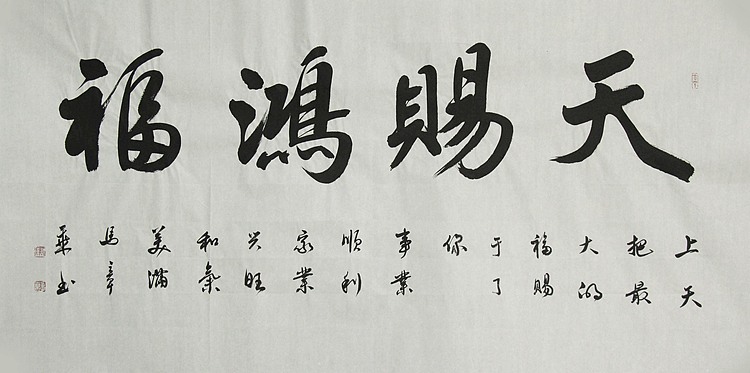 天賜鴻福
上天
把最
大的
福賜
于了
你
事業
順利
家業
兴旺
和氣
美滿
馬章
乘书